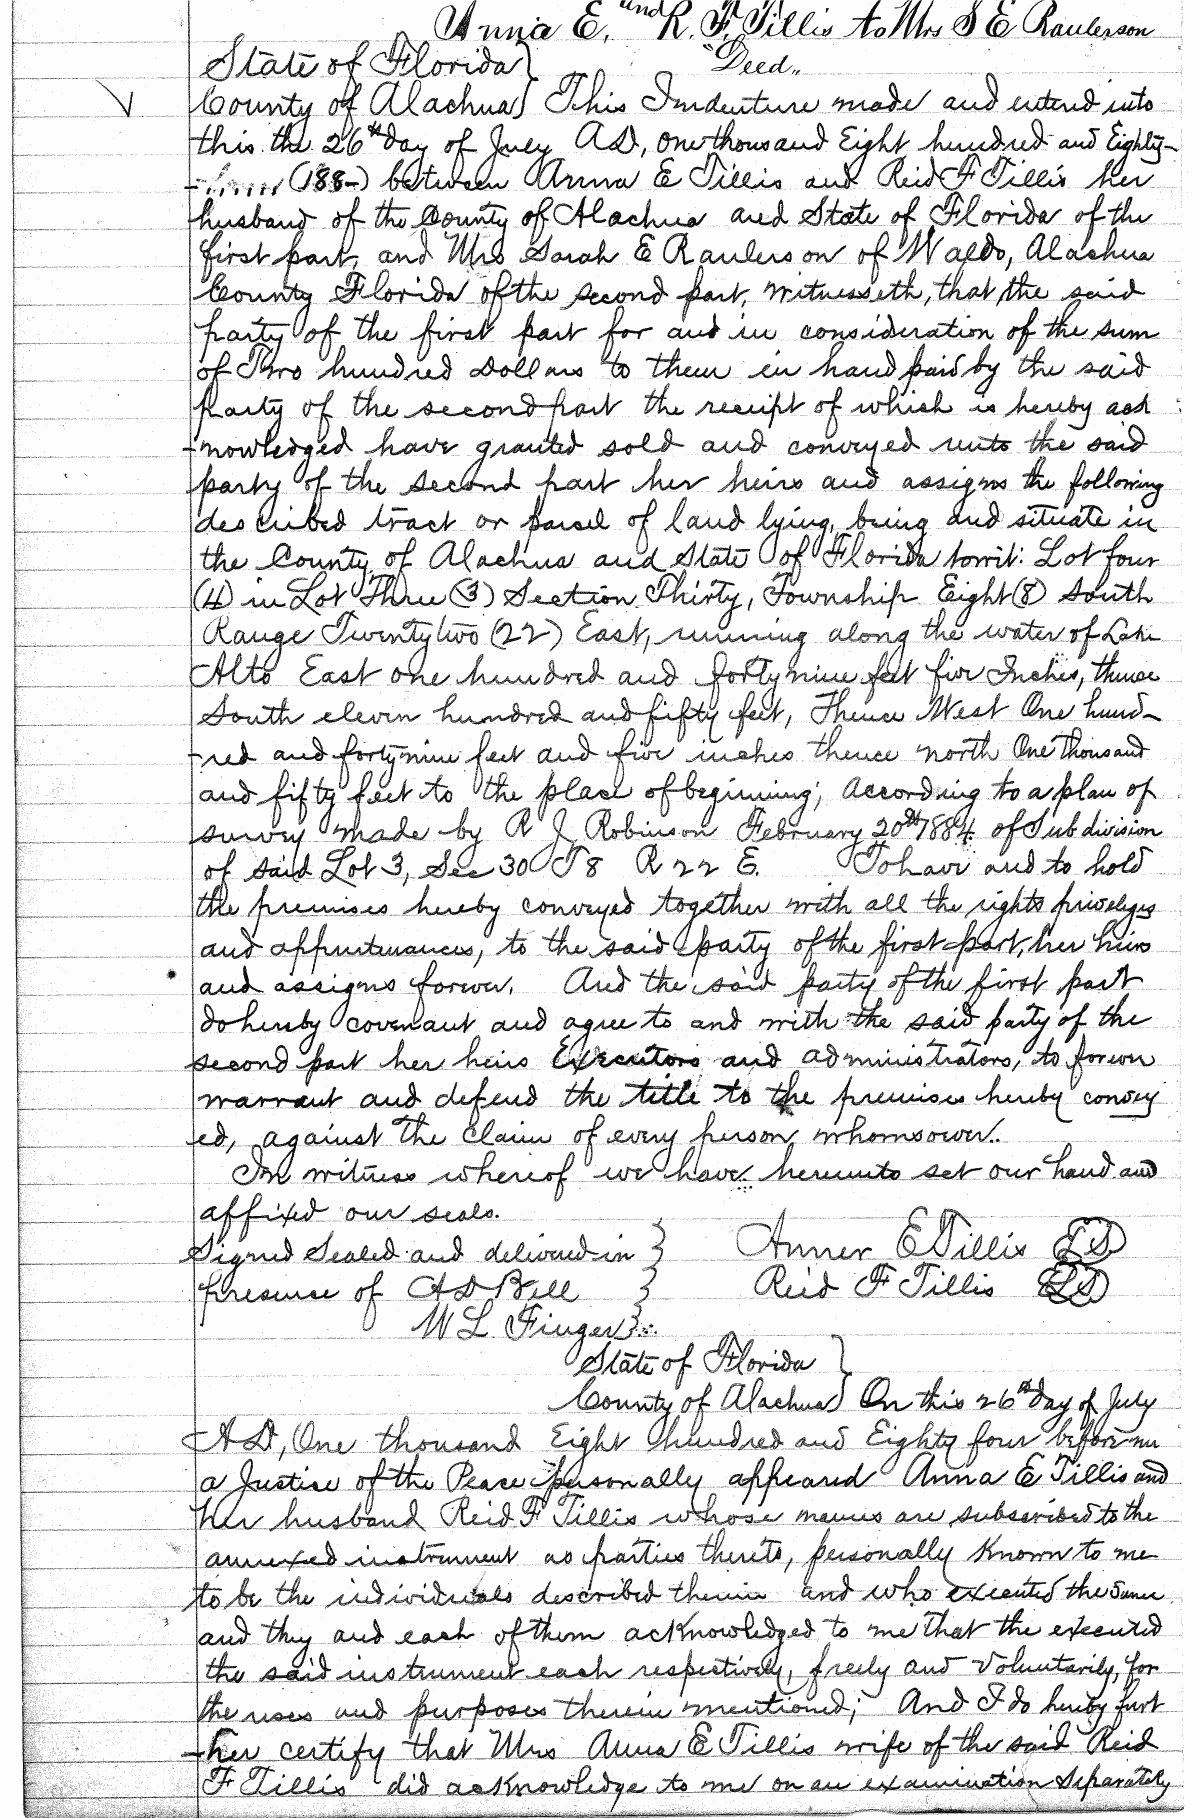 Anna E. and R. F. Tillis to Mrs S E Raulerson
State of Florida } "Deed"
County of Alachua } This Indenture made and enterd into
this the 26th day of July AD, one thousand Eight hundred and Eighty-
(188-) between Anna E Tillis and Reid F Tillis her
husband of the County of Alachua and State of Florida of the
first part, and Mrs Sarah E Raulerson of Waldo, Alachua
County Florida of the second part, witnesseth, that, the said
party of the first part for and in consideration of the sum
of Two hundred Dollars to them in hand paid by the said
party of the second part the receipt of which is hereby ack
-nowledged have granted sold and conveyed unto the said
party of the second part her heirs and assigns the following
described tract or parcel of land lying, being and situate in
the County of Alachua and State of Florida towit: Lot four
(4) in Lot Three (3) Section Thirty, Township Eight (8) South
Range Twenty two (22) East, running along the water of Lake
Alto East one hundred and forty nine feet five Inches, thence
South eleven hundred and fifty feet, Thence West One hund-
-red and forty nine feet and five inches thence north One thousand
and fifty feet to the place of beginning; according to a plan of
survey made by R J Robinson February 20th 1884 of Sub division
of said Lot 3, Sec 30 T 8 R 22 E. To have and to hold
the premises hereby conveyed together with all the rights priveleges
and appurtenances, to the said party of the first part, her heirs
and assigns forever. And the said party of the first part
do hereby covenant and agree to and with the said party of the
second part her heirs Executors and administrators, to forever
warrant and defend the title to the premises hereby convey
ed, against the claim of every person whomsoever.
In witness whereof we have hereunto set our hand and
affixed our seals.
Signed Sealed and delivered in } Anner E Tillis LS
presence of A D Bell } Reid F Tillis LS
W L Finger }
State of Florida }
County of Alachua } On this 26th day of July
A D, One thousand Eight hundred and Eighty four before me
a Justice of the Peace personally appeared Anna E Tillis and
her husband Reid F Tillis whose names are subscribed to the
annexed instrument as parties thereto, personally known to me
to be the individuals described therein and who executed the same
and they and each of them acknowledged to me that the executed
the said instrument each respectively, freely and voluntarily, for
the uses and purposes therein mentioned; And I do hereby furt
-her certify that Mrs Anna E Tillis wife of the said Reid
F Tillis did acknowledge to me on an examination separately